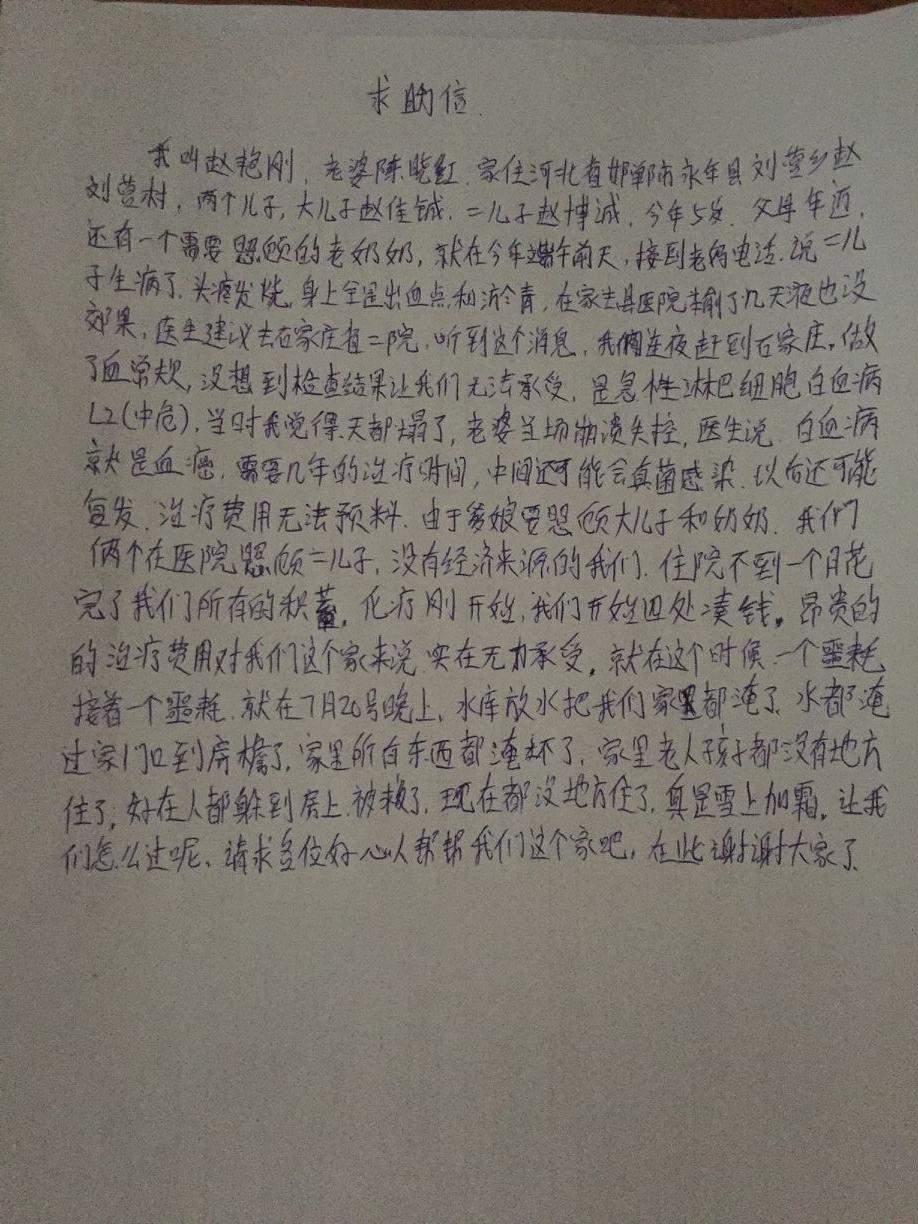 求助信
我叫赵艳刚，老婆陈晓红，家住河北省邯郸市永年县刘营乡赵
刘营村，两个儿子，大儿子赵佳铖，二儿子赵博诚，今年5岁，父母年迈，
还有一个需要照顾的老奶奶，就在今年端午前天，接到老妈电话，说二儿
子生病了，头疼发烧，身上全是出血点和淤青，在家去县医院输了几天液也没
效果，医生建议去石家庄省二院，听到这个消息，我俩连夜赶到石家庄，做
了血常规，没想到检查结果让我们无法承受，是急性淋巴细胞白血病
L2(中危)，当时我觉得天都塌了，老婆当场崩溃失控，医生说，白血病
就是血癌，需要几年的治疗时间，中间还可能会真菌感染，以后还可能
复发，治疗费用无法预料，由于爹娘要照顾大儿子和奶奶，我们
俩个在医院照顾二儿子，没有经济来源的我们，住院不到一个月花
完了我们所有的积蓄，化疗刚开始，我们开始四处凑钱，昂贵的
的治疗费用对我们这个家来说实在无力承受，就在这个时候一个噩耗
接着一个噩耗，就在7月20号晚上，水库放水把我们家里都淹了，水都淹
过家门口到房檐了，家里所有东西都淹坏了，家里老人孩子都没有地方
住了，好在人都躲到房上被救了，现在都没地方住了，真是雪上加霜，让我
们怎么过呢，请求各位好心人帮帮我们这个家吧，在此谢谢大家了